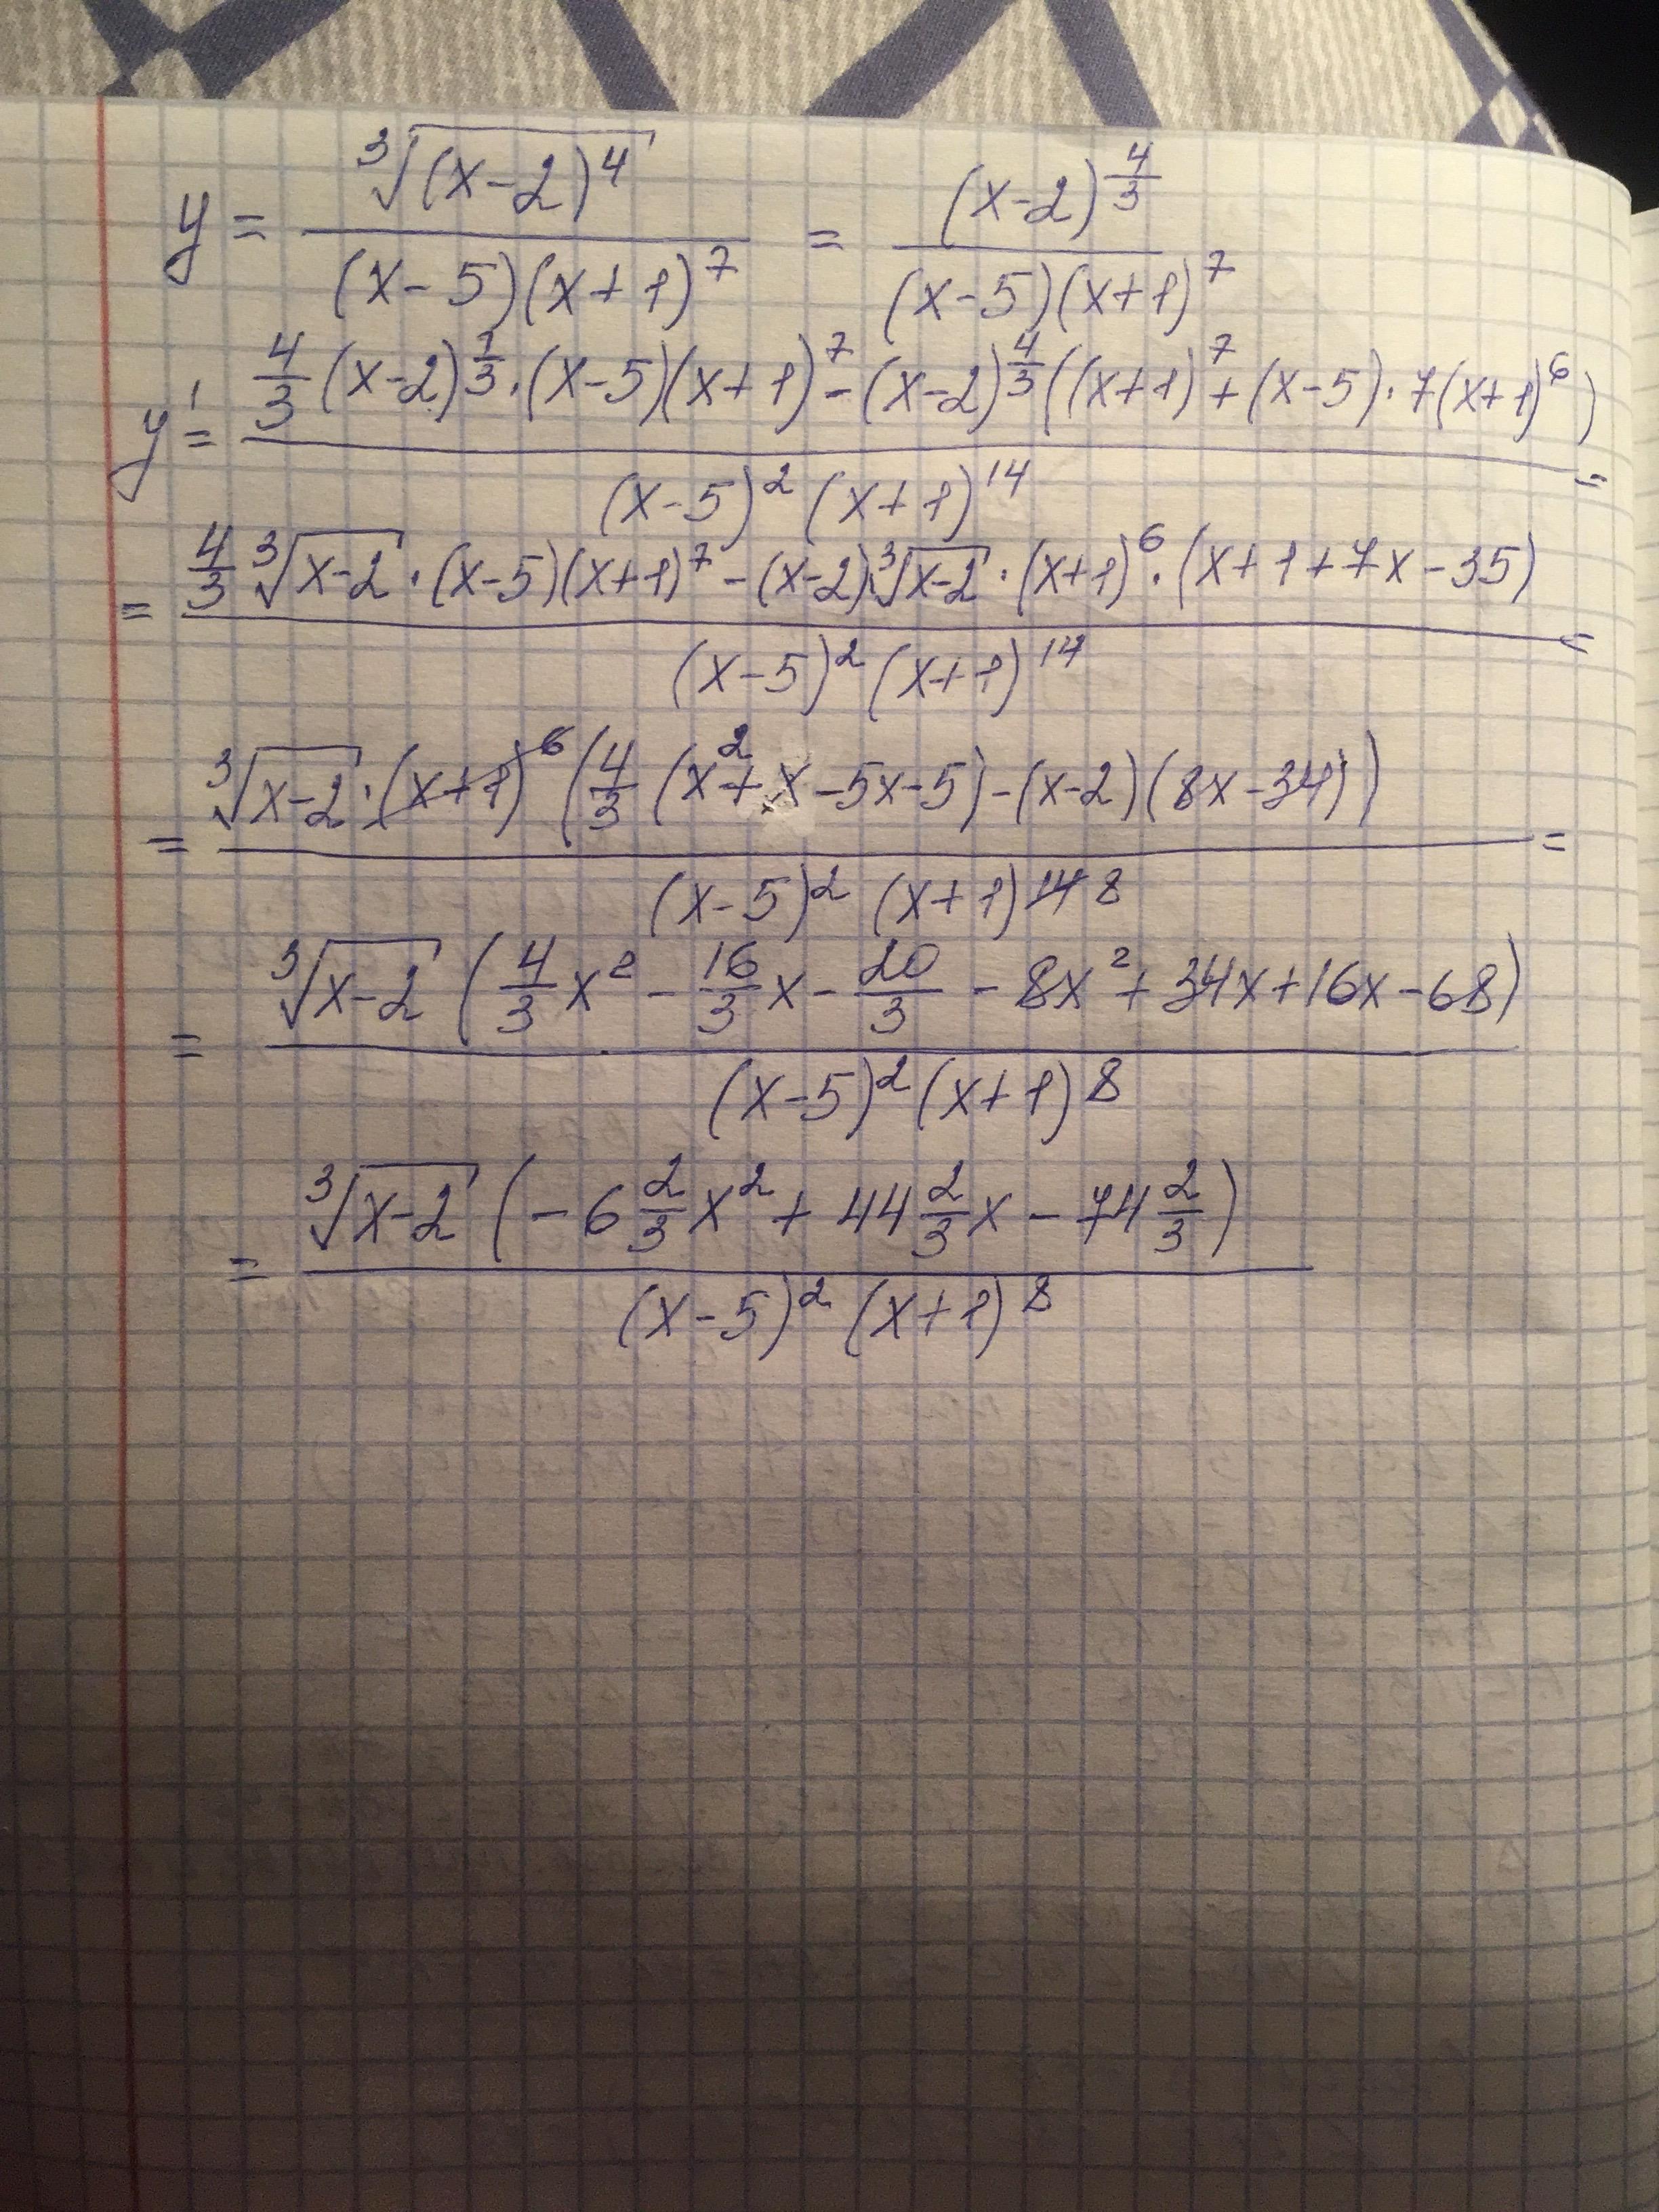 y = ∛((x-2)^4) / ((x-5)(x+1)^7) = (x-2)^(4/3) / ((x-5)(x+1)^7)
y' = (4/3 (x-2)^(1/3) · (x-5)(x+1)^7 - (x-2)^(4/3) ((x+1)^7 + (x-5) · 7(x+1)^6)) / ((x-5)^2 (x+1)^14) =
= (4/3 ∛(x-2) · (x-5)(x+1)^7 - (x-2)∛(x-2) · (x+1)^6 · (x+1+7x-35)) / ((x-5)^2 (x+1)^14) =
= (∛(x-2) · (x+1)^6 (4/3 (x^2+x-5x-5) - (x-2)(8x-34))) / ((x-5)^2 (x+1)^14 8) =
= (∛(x-2) (4/3 x^2 - 16/3 x - 20/3 - 8x^2 + 34x + 16x - 68)) / ((x-5)^2 (x+1)^8)
= (∛(x-2) (-6 2/3 x^2 + 44 2/3 x - 74 2/3)) / ((x-5)^2 (x+1)^8)